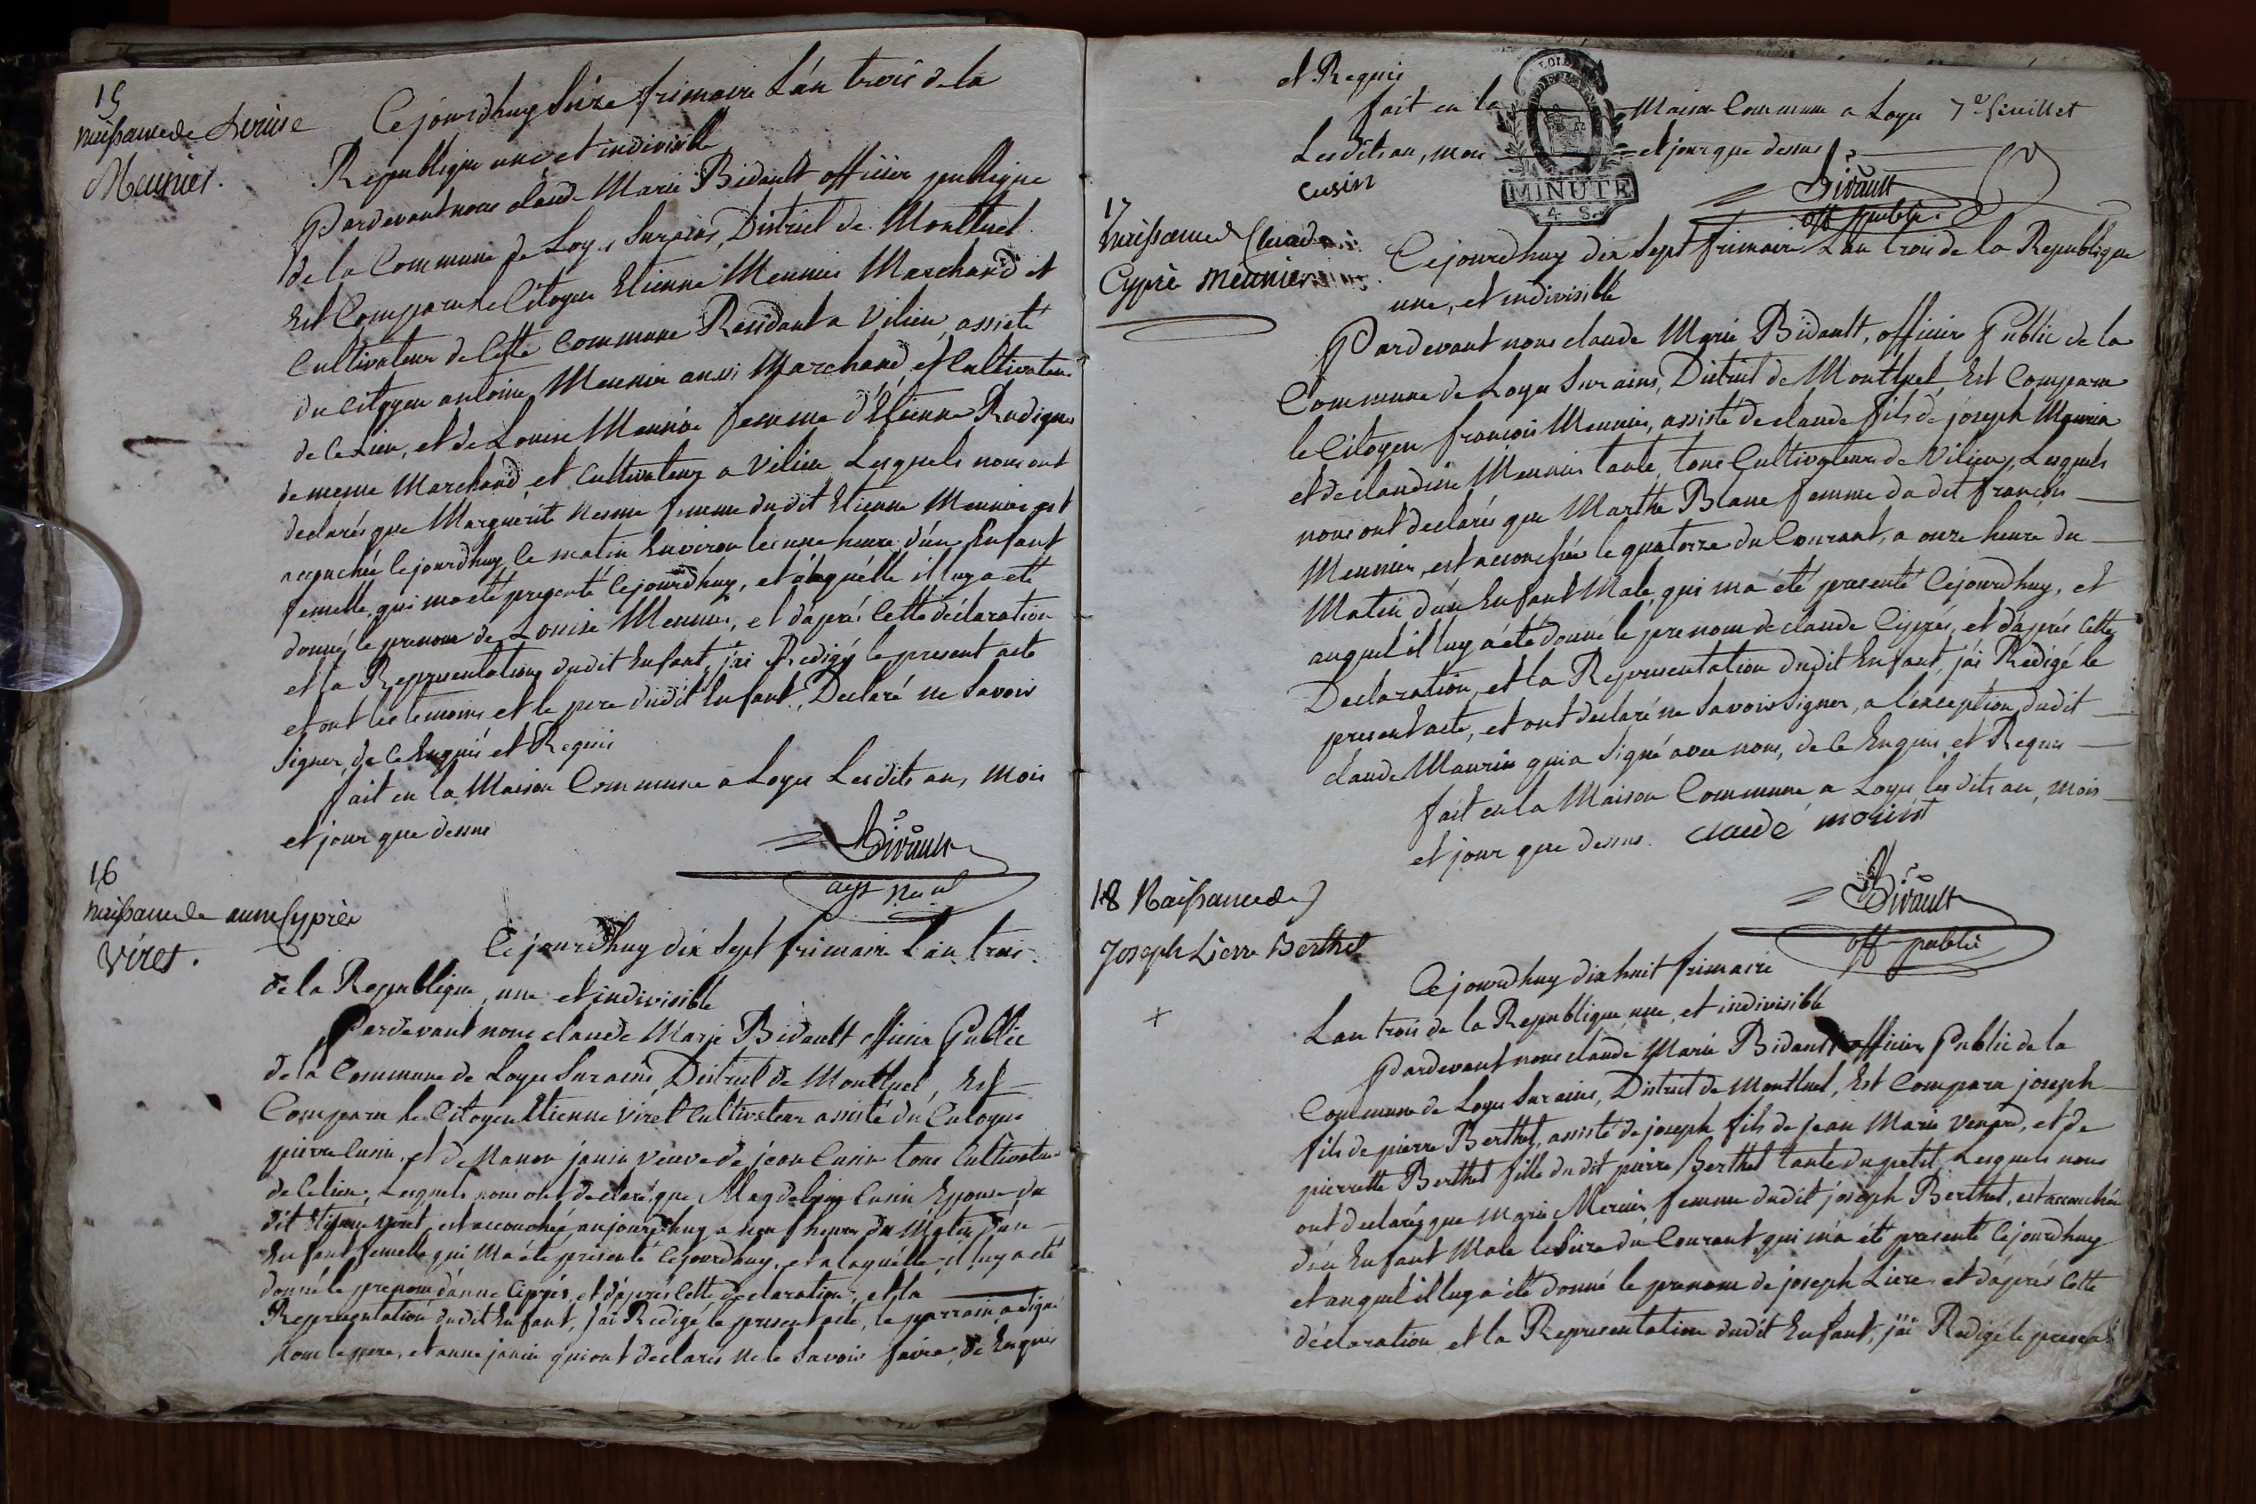 15
naissance de Louise
Meunier.
Cejourdhuy seize frimaire L'an trois de la
Republique une et indivisible
Pardevant nous claude Marie Bidault officier publique
de la Commune de Loyes Surains, District de Montluel
Est Comparu le Citoyen Etienne Meunier Marchand et
Cultivateur de Cette Commune Residant a Vilieu, assisté
du Citoyen antoine Meunier aussi Marchand, et Cultivateur
de Ce Lieu, et de Louise Meunier femme d'Etienne
de meme Marchand, et Cultivateur a Vilieu Lesquels nous ont
declarés que Marguerite femme du dit Etienne Meunier est
accouchée Cejourdhuy le matin Environ les une heure d'un Enfant
femelle, qui ma été presenté Cejourdhuy, et a laquelle il luy a été
donné le prenom de Louise Meunier, et d'aprés Cette déclaration
et la Representation dudit Enfant, j'ai Redigé le present acte
et ont les temoins et le pere dudit Enfant, Declaré ne Savoir
signer, de Ce Enquis et Requis
fait en la Maison Commune a Loyes Lesdits an, mois
et jour que dessus
Bidault
16
naissance de anne Cyprée
Viret.
Cejourdhuy dix Sept frimaire L'an trois
de la Republique, une et indivisible
Pardevant nous claude Marie Bidault officier Public
de la Commune de Loyes Surains District de Montluel, Est
Comparu Le Citoyen Etienne Viret Cultivateur assisté du Citoyen
pierre Cusin, et de Manon janin veuve de jean Cusin tous Cultivateurs
de Ce lieu, Lesquels nous ont declaré que Magdeleine Cusin Epouse du
dit Etienne Viret, est accouchée aujourdhuy a neuf heures du Matin d'un
Enfant femelle qui Ma été presenté Cejourdhuy, et a laquelle il luy a été
donné le prenom d'anne Ciprés, et d'aprés Cette declaration, et la
Representation dudit Enfant, j'ai Redigé le present acte, le parrain a signé
non le pere, et anne janin qui ont declarés ne le Savoir faire, de Enquis
et Requis
fait en la Maison Commune a Loyes 7e feuillet
Lesdits an, mois et jour que dessus
MINUTE
4 S.
cusin
Bidault
off public
17
naissance de Claude
Cyprè meunier
Cejourdhuy dix Sept frimaire L'an trois de la Republique
une, et indivisible
Pardevant nous claude Marie Bidault, officier Public de la
Commune de Loyes Surains, District de Montluel Est Comparu
le Citoyen francois Meunier, assisté de claude fils de joseph
et de claudine Meunier tante, tous Cultivateurs de Vilieu, Lesquels
nous ont declarés que Marthe Blanc femme du dit francois
Meunier, est accouchée le quatorze du Courant, a onze heure du
Matin d'un Enfant Male, qui ma été presenté Cejourdhuy, et
auquel il luy a été donné le prenom de claude Ciprés, et d'aprés Cette
Declaration, et la Representation dudit Enfant, j'ai Redigé le
present acte, et ont declaré ne Savoir Signer, a l'exception dudit
claude Maurin qui a Signé avec nous, de Ce Enquis, et Requis
fait en la Maison Commune a Loyes lesdits an, mois
et jour que dessus. claude morint
Bidault
off public
18 Naissance de
Joseph Lierre Berthet
+
Cejourdhuy dix huit frimaire
Lan trois de la Republique une, et indivisible
Pardevant nous claude Marie Bidault officier Public de la
Commune de Loyes Surains, District de Montluel, Est Comparu joseph
fils de pierre Berthet, assisté de joseph fils de jean Marie, et de
pierrette Berthet fille du dit pierre Berthet tante du petit, Lesquels nous
ont declarés que Marie Mercier femme dudit joseph Berthet, est accouchée
d'un Enfant Male le Seize du Courant qui m'a été presenté Cejourdhuy
et auquel il luy a été donné le prenom de joseph Lierre, et d'aprés Cette
déclaration, et la Representation dudit Enfant, j'ai Redigé le present